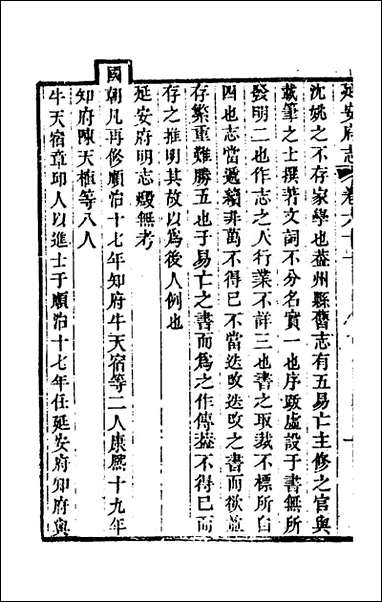 延安府志 卷六十
沈姚之不存家學也蓋州縣舊志有五易亡主修之官與
載筆之士撰著文詞不分名實一也序跋虛設于書無所
發明二也作志之人行業不詳三也書之取裁不標所自
四也志當遞續非萬不得已不當迭改迭改之書而欲並
存繁重難勝五也于易亡之書而爲之作傳蓋不得已而
存之推明其故以爲後人例也
延安府明志燬無考
國朝凡再修順治十七年知府牛天宿等二人康熙十九年
知府陳天植等八人
牛天宿章邱人以進士于順治十七年任延安府知府與